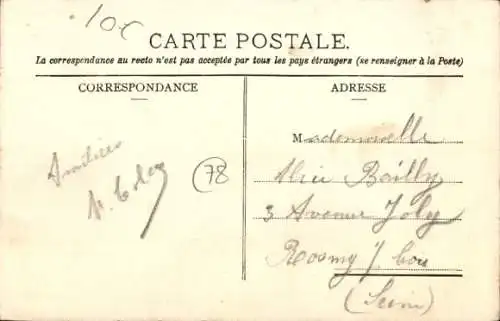 10€
CARTE POSTALE.
La correspondance au recto n'est pas acceptée par tous les pays étrangers (se renseigner à la Poste)
CORRESPONDANCE
ADRESSE
Amitiés
78
Mademoiselle
Bailly
3 Avenue Joly
Rosny s/ bois
(Seine)